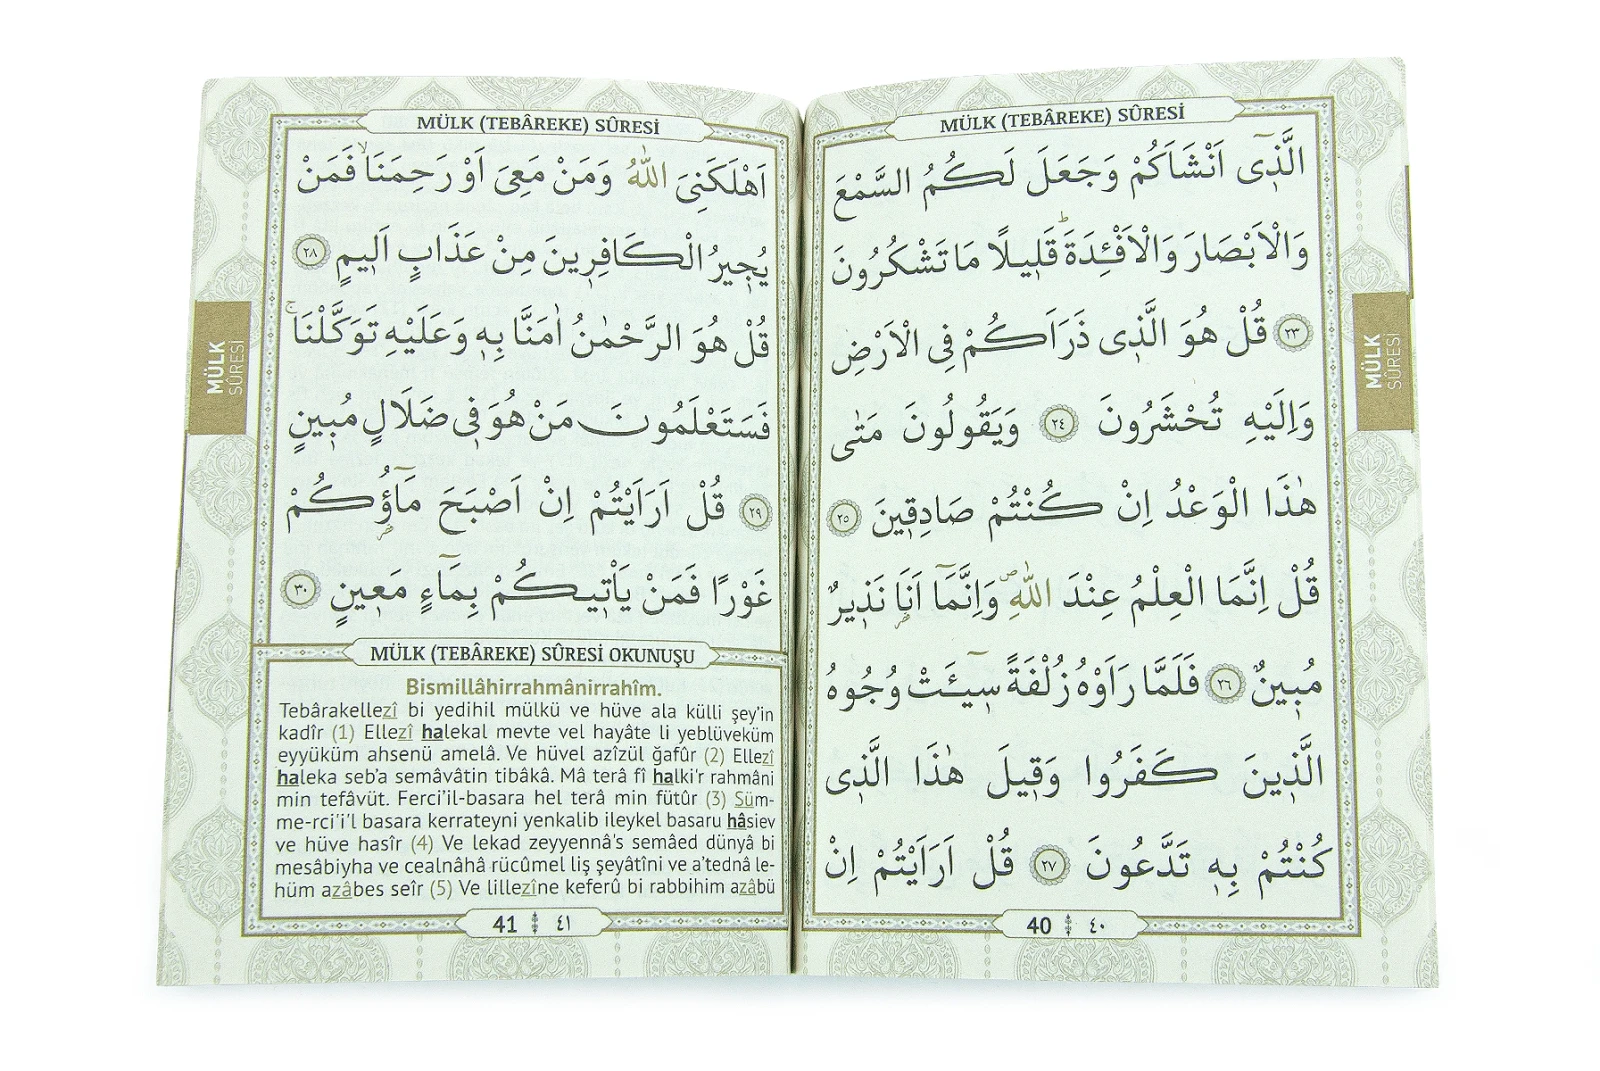 MÜLK (TEBÂREKE) SÛRESİ
الَّذٖٓى اَنْشَاَكُمْ وَجَعَلَ لَكُمُ السَّمْعَ
وَالْاَبْصَارَ وَالْاَفْـِٔدَةَؕ قَلٖيلًا مَا تَشْكُرُونَ
﴿٢٣﴾ قُلْ هُوَ الَّذٖى ذَرَاَكُمْ فِى الْاَرْضِ
وَاِلَيْهِ تُحْشَرُونَ ﴿٢٤﴾ وَيَقُولُونَ مَتٰى
هٰذَا الْوَعْدُ اِنْ كُنْتُمْ صَادِقٖينَ ﴿٢٥﴾
قُلْ اِنَّمَا الْعِلْمُ عِنْدَ اللّٰهِࣕ وَاِنَّمَٓا اَنَا۬ نَذٖيرٌ
مُبٖينٌ ﴿٢٦﴾ فَلَمَّا رَاَوْهُ زُلْفَةً سٖٓيـَٔتْ وُجُوهُ
الَّذٖينَ كَفَرُوا وَقٖيلَ هٰذَا الَّذٖى
كُنْتُمْ بِهٖ تَدَّعُونَ ﴿٢٧﴾ قُلْ اَرَاَيْتُمْ اِنْ
40 ٤٠
MÜLK SÛRESİ
MÜLK (TEBÂREKE) SÛRESİ
اَهْلَكَنِىَ اللّٰهُ وَمَنْ مَعِىَ اَوْ رَحِمَنَاۙ فَمَنْ
يُجٖيرُ الْكَافِرٖينَ مِنْ عَذَابٍ اَلٖيمٍ ﴿٢٨﴾
قُلْ هُوَ الرَّحْمٰنُ اٰمَنَّا بِهٖ وَعَلَيْهِ تَوَكَّلْنَاۚ
فَسَتَعْلَمُونَ مَنْ هُوَ فٖى ضَلَالٍ مُبٖينٍ
﴿٢٩﴾ قُلْ اَرَاَيْتُمْ اِنْ اَصْبَحَ مَٓاؤُ۬كُمْ
غَوْرًا فَمَنْ يَاْتٖيكُمْ بِمَٓاءٍ مَعٖينٍ ﴿٣٠﴾
MÜLK (TEBÂREKE) SÛRESİ OKUNUŞU
Bismillâhirrahmânirrahîm.
Tebârakellezî bi yedihil mülkü ve hüve ala külli şey'in
kadîr (1) Ellezî halekal mevte vel hayâte li yeblüveküm
eyyüküm ahsenü amelâ. Ve hüvel azîzül ğafûr (2) Ellezî
haleka seb'a semâvâtin tibâkâ. Mâ terâ fî halki'r rahmâni
min tefâvüt. Ferci'il-basara hel terâ min fütûr (3) Süm-
me-rci'i'l basara kerrateyni yenkalib ileykel basaru hâsiev
ve hüve hasîr (4) Ve lekad zeyyennâ's semâed dünyâ bi
mesâbiyha ve cealnâhâ rücûmel liş şeyâtîni ve a'tednâ le-
hüm azâbes seîr (5) Ve lillezîne keferû bi rabbihim azâbü
41 ٤١
MÜLK SÛRESİ